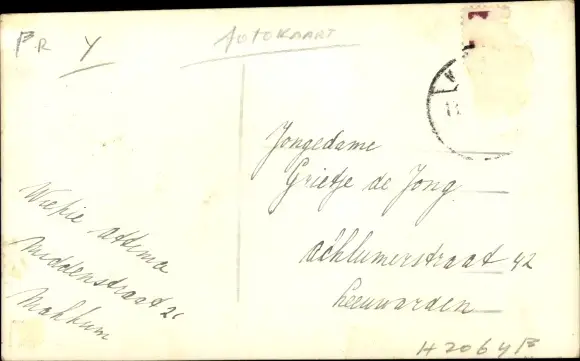 PR Y
AUTOKAART
Jongedame
Grietje de Jong
Achlumerstraat 42
Leeuwarden
Wiepie Attema
Middenstraat 21
Makkum
H2064B